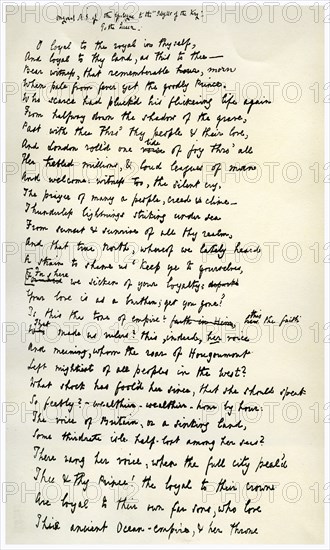 original M.S. of the Epilogue to the "Idylls of the King"
To the Queen.
O loyal to the royal in thyself,
And loyal to thy land, as this to thee—
Bear witness, that rememberable hour, morn
When pale from fever yet the goodly Prince,
Who scarce had pluck'd his flickering life again
From halfway down the shadow of the grave,
Past with thee thro' thy people & their love,
tide
And London roll'd one of joy thro' all
Her trebled millions, & loud leagues of man
And welcome: witness too, the silent cry,
The prayer of many a people, creed & clime—
Thunderless lightnings striking under sea
From sunset & sunrise of all thy realm,
And that true North, whereof we lately heard
A strain to shame us "keep ye to yourselves,
For there
we sicken of your loyalty:
Your love is as a burthen: get you gone."
Is this the tone of empire? faith in him, here the faith
this
That
made us rulers? this, indeed, her voice
And meaning, whom the roar of Hougoumont
Left mightiest of all peoples in the west?
What shock has fool'd her since, that she should speak
So feebly? — wealthier — wealthier — hour by hour.
The voice of Britain, or a sinking land,
Some thirdrate isle half-lost among her seas?
There rang her voice, when the full city peal'd
Thee & thy Prince! the loyal to their crown
Are loyal to their own far sons, who love
This ancient Ocean-empire, & her throne
PHOTO12